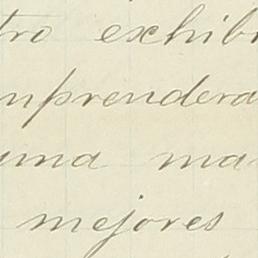 tro exhibi
mprendera
una ma
mejores